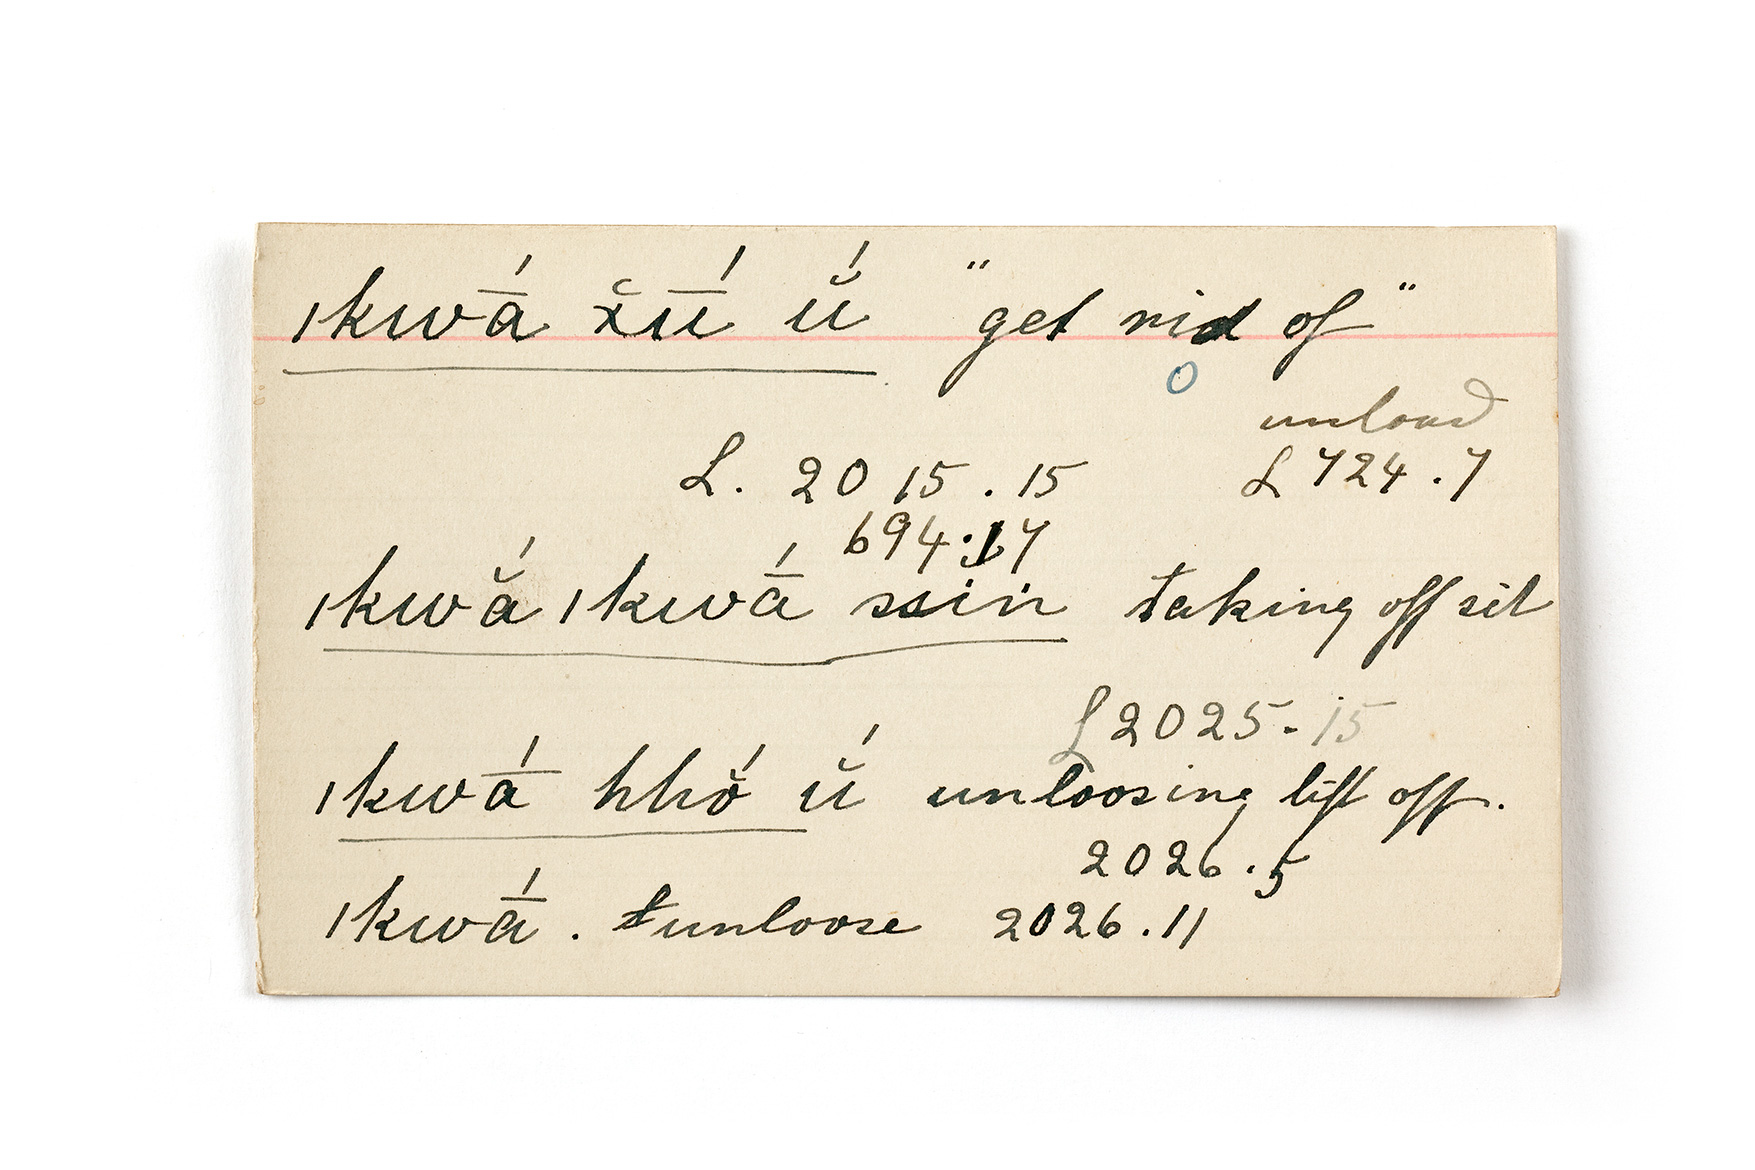 ǀkwā́ x̆ū́ ŭ́ "get rid of"
o
unload
L. 2015.15 L 724.7
694:17
ǀkwắ ǀkwā́ ssin taking off sit
L 2025-15
ǀkwā́ hhŏ́ ŭ́ unloosing lift off.
2026.5
ǀkwā́. unloose 2026.11